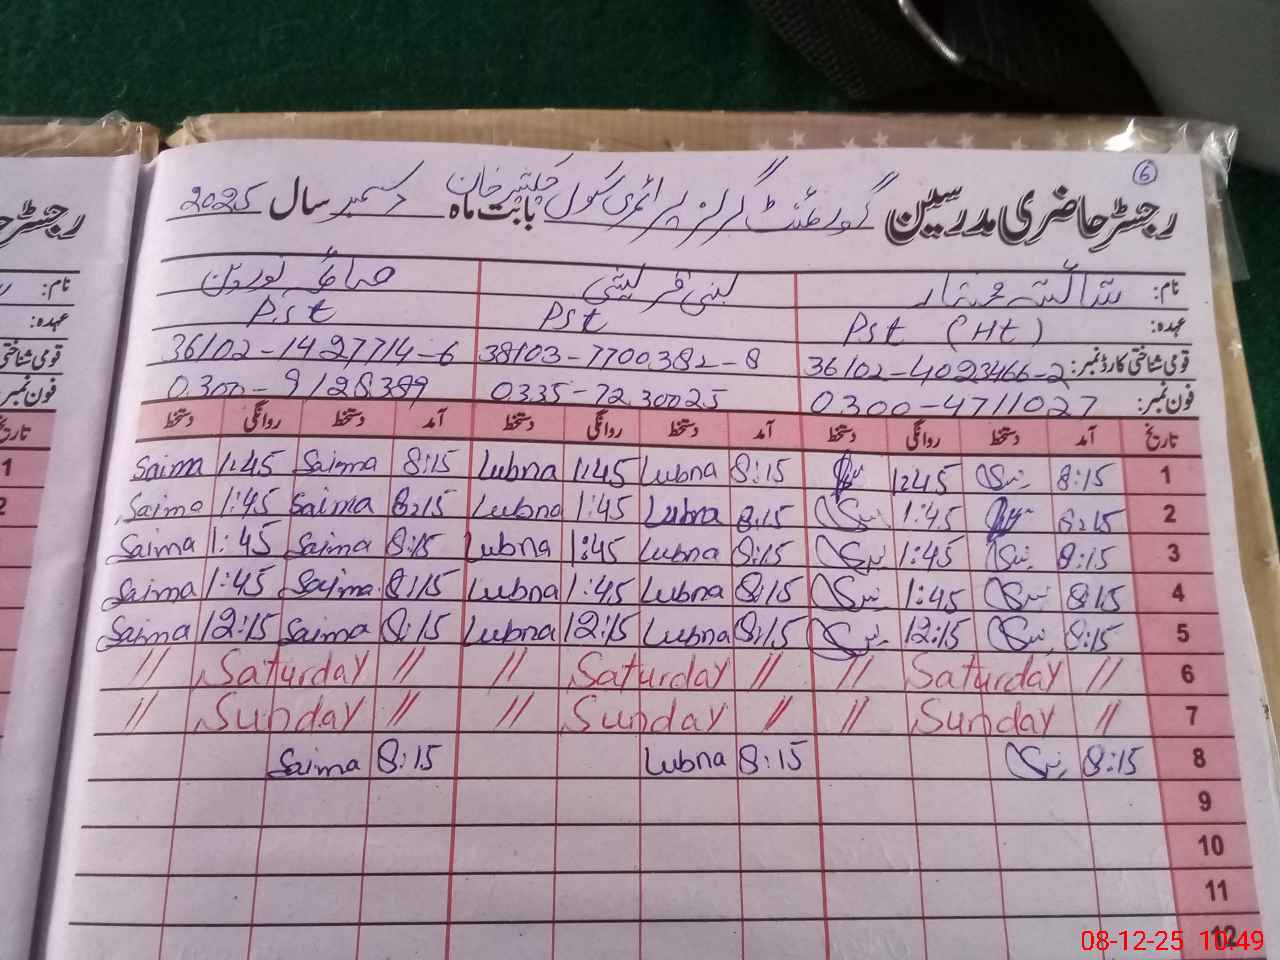 6
رجسٹر حاضری مدرسین گورنمنٹ گرلز پرائمری سکول بابت ماہ دسمبر سال 2025
نام: شائستہ مختار لبنی قریشی صائمہ نورین
عہدہ: Pst (Ht) Pst Pst
قومی شناختی کارڈ نمبر: 36102-4023466-2 38103-7700382-8 36102-1427714-6
فون نمبر: 0300-4711027 0335-7230025 0300-9128389
تاریخ آمد دستخط روانگی دستخط آمد دستخط روانگی دستخط آمد دستخط روانگی دستخط
1 8:15 1:45 8:15 Lubna 1:45 Lubna 8:15 Saima 1:45 Saima
2 8:15 1:45 8:15 Lubna 1:45 Lubna 8:15 Saima 1:45 Saima
3 8:15 1:45 8:15 Lubna 1:45 Lubna 8:15 Saima 1:45 Saima
4 8:15 1:45 8:15 Lubna 1:45 Lubna 8:15 Saima 1:45 Saima
5 8:15 12:15 8:15 Lubna 12:15 Lubna 8:15 Saima 12:15 Saima
6 // Saturday // // Saturday // // Saturday //
7 // Sunday // // Sunday // // Sunday //
8 8:15 8:15 Lubna 8:15 Saima
9
10
11
12
رجسٹر
نام:
عہدہ:
قومی شناختی
فون نمبر:
1
2
08-12-25 10:49